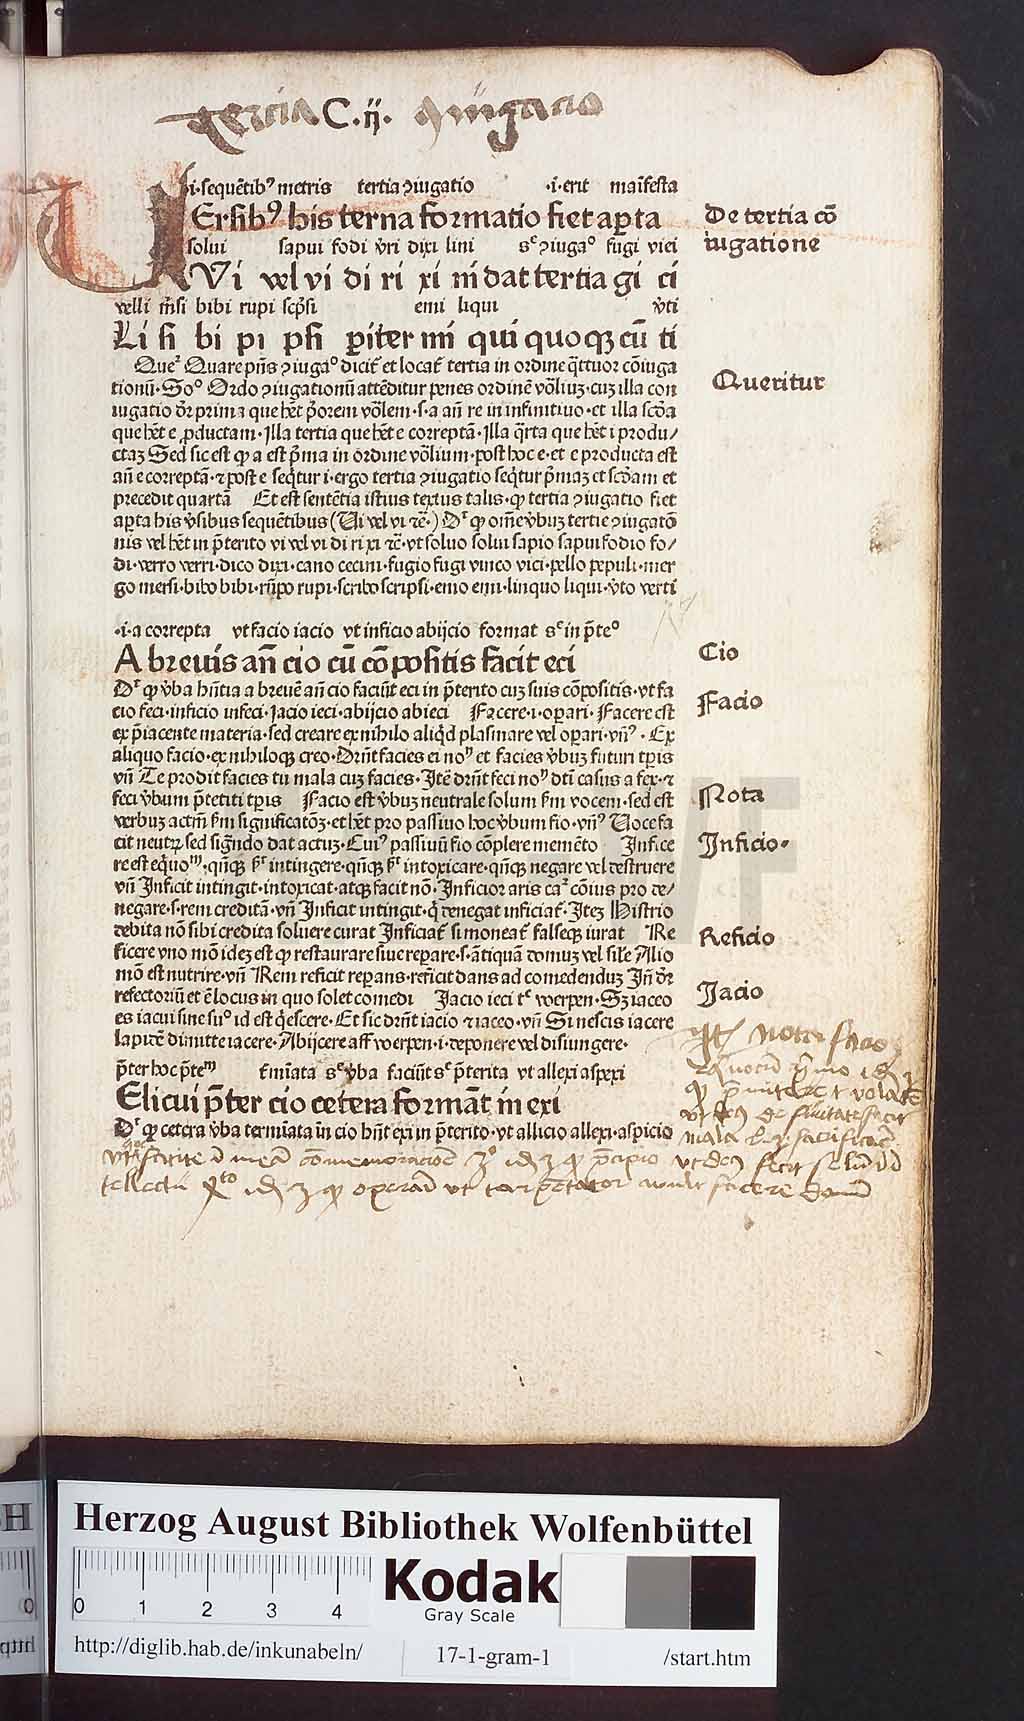 Tercia C.ij. ꝯiugacio
.i. sequētibꝰ metris tertia ꝯiugatio .i. erit maīfesta
VErsibꝰ his terna formatio fiet aꝑta
De tertia cō
iugatione
solui sapui fodi v̄ri dixi lini sꝫ ꝯiugaᵒ fugi vici
Vi vel vi di ri xi ni dat tertia gi ci
velli m̄si bibi rupi scp̄si emi liqui v̄ti
Li si bi pi psi ꝑiter mi qui quoqꝫ cū ti
Queritur
Queʳ Quare pn̄s ꝯiugaᵒ dicit᷑ et locat᷑ tertia in ordine q̄ttuor cōiuga
tionū. Soᵒ Ordo ꝯiugationū attēditur penes ordinē vōliuꝫ. cuꝫ illa con
iugatio dr̄ prima que hēt p̄orem vōlem .s. a an̄ re in infinitiuo. et illa scd̄a
que hēt e ꝓductam. Illa tertia que hēt e correptā. Illa q̄rta que hēt i produ/
ctaꝫ Sed sic est ꝙ a est p̄ma in ordine vōlium. post hoc e. et e producta est
an̄ e correptā. ⁊ post e seq̄tur i. ergo tertia ꝯiugatio seq̄tur p̄maꝫ et scd̄am et
precedit quartā Et est sentētia istius textus talis. ꝙ tertia ꝯiugatio fiet
aꝑta his v̄sibus sequētibus (Vi vel vi ⁊c̄.) Dʳ ꝙ om̄e v̄buꝫ tertie ꝯiugatō
nis vel hēt in p̄terito vi vel vi di ri xi ⁊c̄. vt soluo solui sapio sapui fodio fo/
di. verro verri. dico dixi. cano cecini. fugio fugi vinco vici. pello pepuli. mer
go mersi. bibo bibi. rūpo rupi. scribo scripsi. emo emi. linquo liqui. v̄to verti
.i. a correpta vt facio iacio vt inficio abijcio format sꝫ in p̄teᵒ
A breuis an̄ cio cū cōpositis facit eci
Cio
Dʳ ꝙ v̄ba hn̄tia a breuē an̄ cio faciūt eci in p̄terito cuꝫ suis cōpositis. vt fa
cio feci. inficio infeci. Jacio ieci. abijcio abieci Facere .i. oꝑari. Facere est
Facio
ex p̄iacente materia. sed creare ex nihilo aliq̄d plasmare vel oꝑari. vn̄ꝰ. Ex
aliquo facio. ex nihiloqꝫ creo. Dr̄nt facies ei noᵐ et facies v̄buꝫ futuri tꝑis
vn̄ Te prodit facies tu mala cuꝫ facies. Itē dr̄nt feci noᵐ dt̄i casus a fex. ⁊
feci v̄bum p̄tetiti tꝑis Facio est v̄buꝫ neutrale solum ẜm vocem. sed est
Nota
verbuꝫ actm̄ ẜm significatōꝫ. et hēt pro passiuo hoc v̄bum fio. vn̄ꝰ Voce fa
cit neutꝝ sed sign̄do dat actuꝫ. Cuiꝰ passiuū fio cōplere memēto Infice
Inficio.
re est eq̇uoᵐ. qn̄qꝫ ē intingere. qn̄qꝫ ē intoxicare. qn̄qꝫ negare vel destruere
vn̄ Inficit intingit. intoxicat. atqꝫ facit nō. Inficior aris caʳ cōius pro de/
negare .s. rem creditā. vn̄ Inficit intingit. q̇ denegat inficiat᷑. Iteꝫ Histrio
debita nō sibi credita soluere curat Inficiat᷑ si moneat᷑ falseqꝫ iurat Re
Reficio
ficere vno mō ideꝫ est ꝙ restaurare siue reꝑare .s. ātiquā domuꝫ vel sil̄e Alio
mō est nutrire. vn̄ Rem reficit reꝑans. reficit dans ad comedenduꝫ Jn̄ dr̄
refectoriū et ē locus in quo solet comedi Jacio ieci tꝫ werpen. Sꝫ iaceo
Jacio
es iacui sine suᵒ id est q̇escere. Et sic dr̄nt iacio ⁊ iaceo. vn̄ Si nescis iacere
lapidē dimitte iacere. Abijcere aff werpen .i. deponere vel disiungere.
p̄ter hoc p̄teᵐ t᷑mīata sꝫ v̄ba faciūt sꝫ p̄terita vt allexi aspexi
Elicui p̄ter cio cetera formāt in exi
Dʳ ꝙ cetera v̄ba termīata in cio hn̄t exi in p̄terito. vt allicio allexi. aspicio
Herzog August Bibliothek Wolfenbüttel
0 1 2 3 4
Kodak
Gray Scale
http://diglib.hab.de/inkunabeln/ 17-1-gram-1 /start.htm